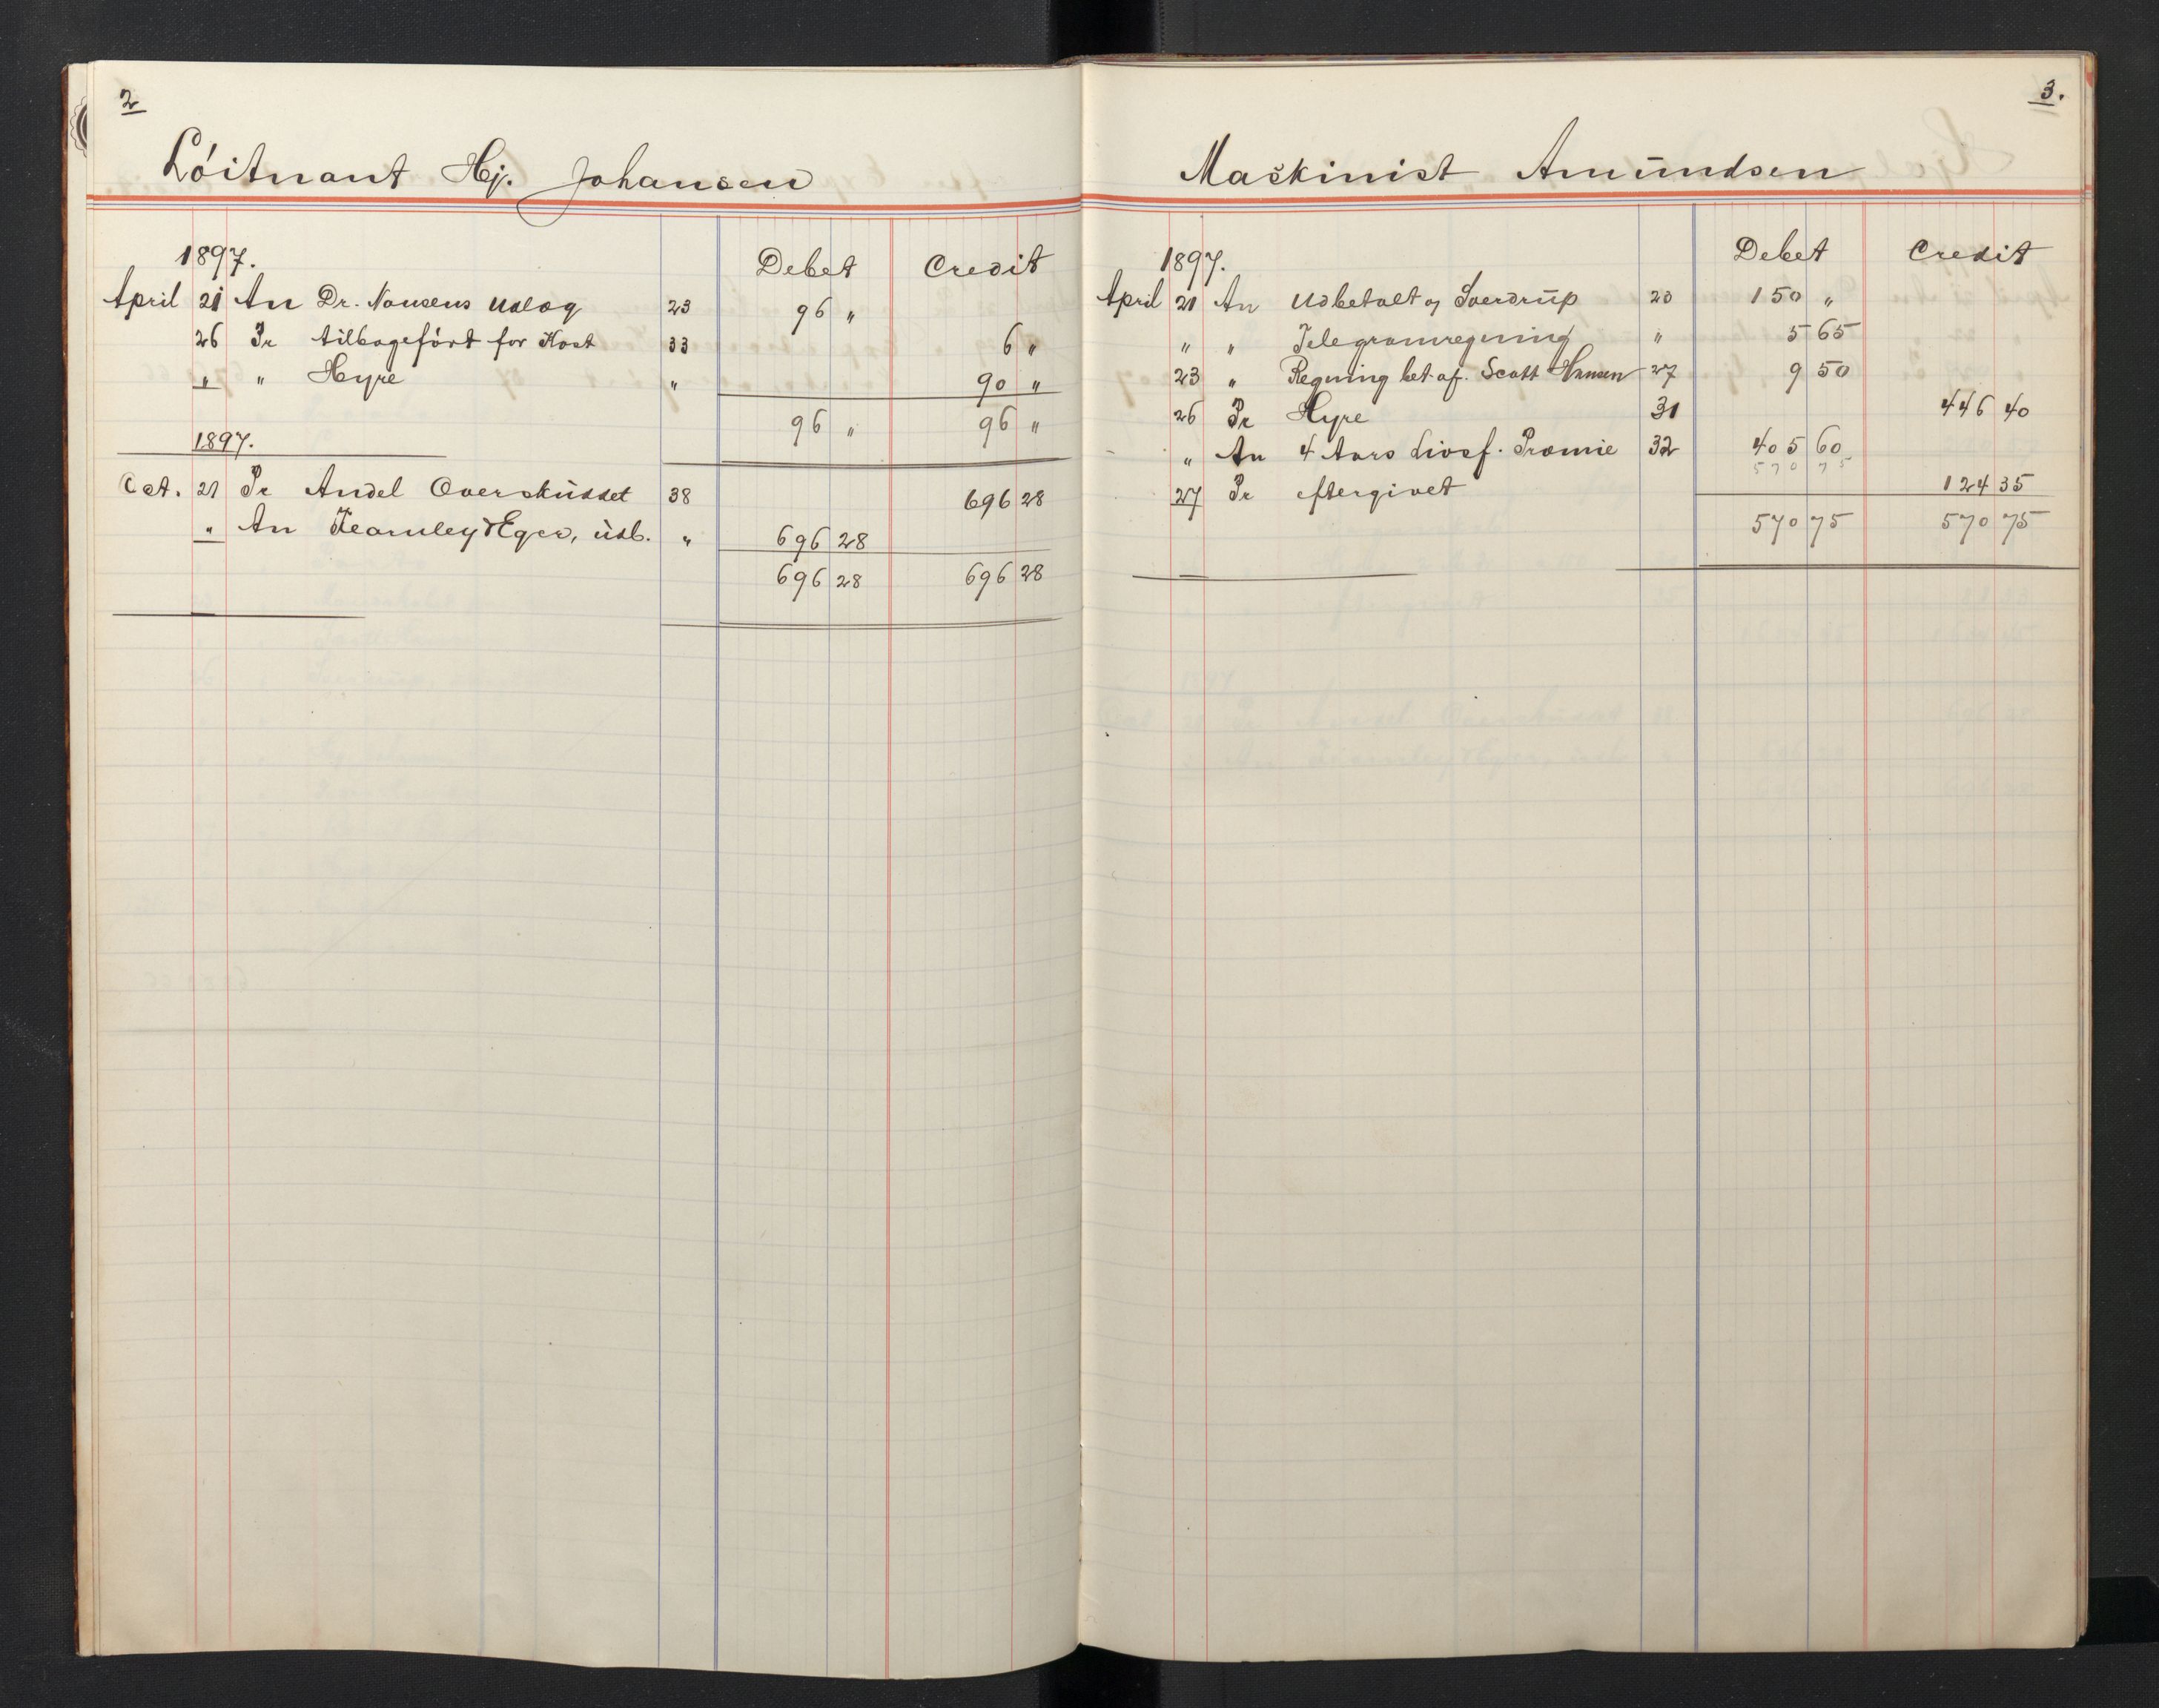 2
Löitnant Hj. Johansen
1897. Debet Credit
April 21 An Dr. Nansens Udlæg 23 96 "
26 Pr tilbageført for Kost 33 6 "
" " Hyre " 90 "
96 " 96 "
1897.
Oct. 21 Pr Andel Overskuddet 38 696 28
" An Fearnley & Eger, udb. " 696 28
696 28 696 28
3.
Maskinist Amundsen
1897. Debet Credit
April 21 An Udbetalt af Sverdrup 23 150 "
" " Telegramregning " 5 65
23 " Regning bet. af. Scott Hansen 27 9 50
26 Pr Hyre 31 446 40
" An 4 Aars Livsf. Præmie 32 405 60
570 75
27 Pr eftergivet 124 35
570 75 570 75